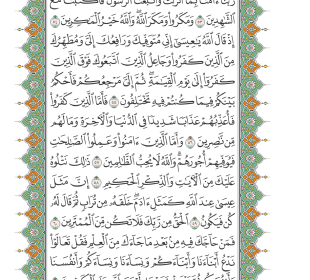 رَبَّنَآ ءَامَنَّا بِمَآ أَنزَلْتَ وَٱتَّبَعْنَا ٱلرَّسُولَ فَٱكْتُبْنَا مَعَ
ٱلشَّٰهِدِينَ ۝٥٣ وَمَكَرُوا۟ وَمَكَرَ ٱللَّهُ وَٱللَّهُ خَيْرُ ٱلْمَٰكِرِينَ ۝٥٤
إِذْ قَالَ ٱللَّهُ يَٰعِيسَىٰٓ إِنِّى مُتَوَفِّيكَ وَرَافِعُكَ إِلَىَّ وَمُطَهِّرُكَ
مِنَ ٱلَّذِينَ كَفَرُوا۟ وَجَاعِلُ ٱلَّذِينَ ٱتَّبَعُوكَ فَوْقَ ٱلَّذِينَ
كَفَرُوٓا۟ إِلَىٰ يَوْمِ ٱلْقِيَٰمَةِ ثُمَّ إِلَىَّ مَرْجِعُكُمْ فَأَحْكُمُ
بَيْنَكُمْ فِيمَا كُنتُمْ فِيهِ تَخْتَلِفُونَ ۝٥٥ فَأَمَّا ٱلَّذِينَ كَفَرُوا۟
فَأُعَذِّبُهُمْ عَذَابًا شَدِيدًا فِى ٱلدُّنْيَا وَٱلْءَاخِرَةِ وَمَا لَهُم
مِّن نَّٰصِرِينَ ۝٥٦ وَأَمَّا ٱلَّذِينَ ءَامَنُوا۟ وَعَمِلُوا۟ ٱلصَّٰلِحَٰتِ
فَيُوَفِّيهِمْ أُجُورَهُمْ وَٱللَّهُ لَا يُحِبُّ ٱلظَّٰلِمِينَ ۝٥٧ ذَٰلِكَ نَتْلُوهُ
عَلَيْكَ مِنَ ٱلْءَايَٰتِ وَٱلذِّكْرِ ٱلْحَكِيمِ ۝٥٨ إِنَّ مَثَلَ
عِيسَىٰ عِندَ ٱللَّهِ كَمَثَلِ ءَادَمَ خَلَقَهُۥ مِن تُرَابٍ ثُمَّ قَالَ لَهُۥ
كُن فَيَكُونُ ۝٥٩ ٱلْحَقُّ مِن رَّبِّكَ فَلَا تَكُن مِّنَ ٱلْمُمْتَرِينَ ۝٦٠
فَمَنْ حَآجَّكَ فِيهِ مِنۢ بَعْدِ مَا جَآءَكَ مِنَ ٱلْعِلْمِ فَقُلْ تَعَالَوْا۟
نَدْعُ أَبْنَآءَنَا وَأَبْنَآءَكُمْ وَنِسَآءَنَا وَنِسَآءَكُمْ وَأَنفُسَنَا